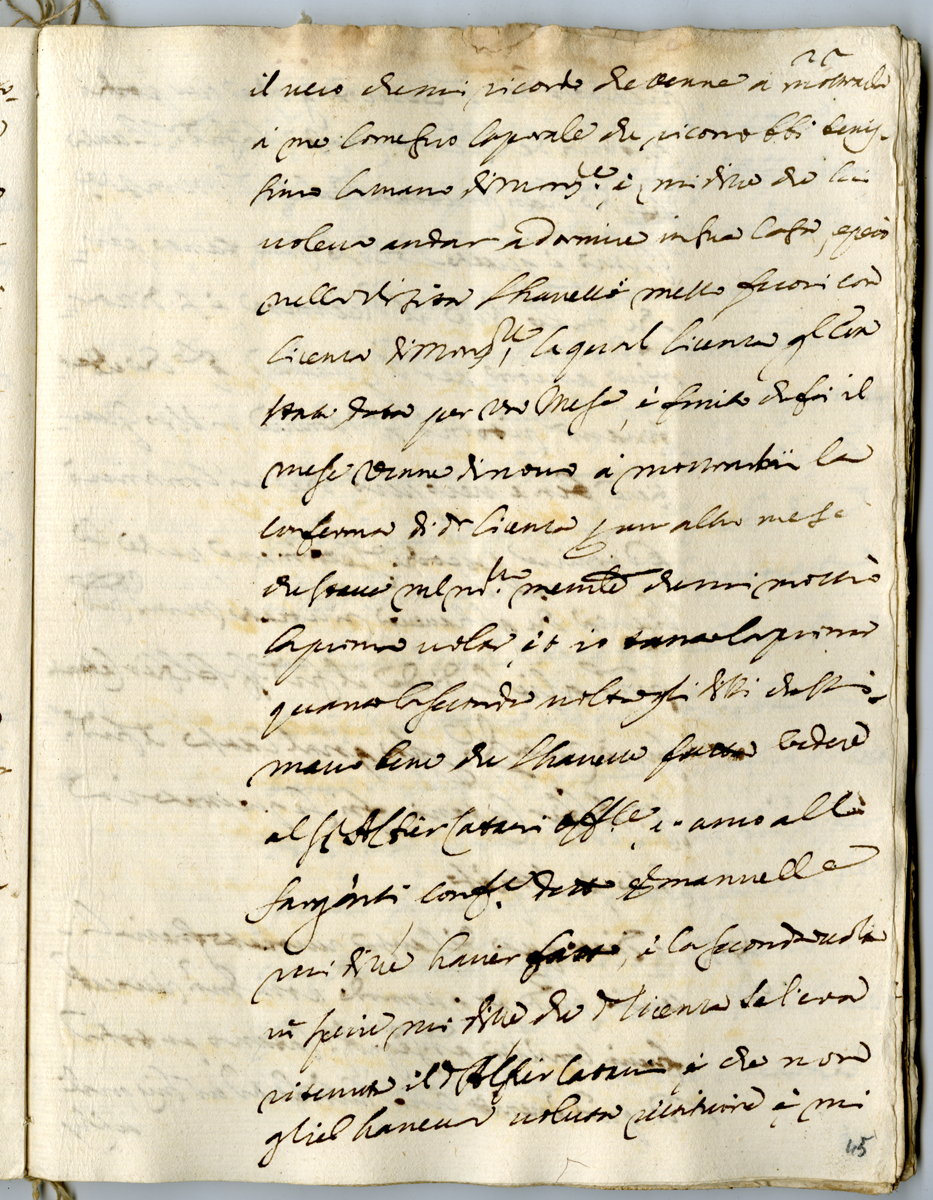 il vero che mi ricordo che venne à mostrarla
à me Caporale che riconobbi benis-
simo la mano di Mons.re, e mi disse che lui
voleva andar à dormire in sua Casa, e però
nella l'havesse messo fuori con
licenza di Mons.re, la qual licenza gl'era
stata data per un Mese, e finito che fù il
mese venne di novo à mostrarmi la
conferma di d.a licenza p un altro mese
che stava nel che mi mostrò
la prima volta, et io tanto la prima
quanto la seconda volta gli dissi che sti-
mavo bene che l'havesse fatta vedere
al S.r Alfier Cattani off.le, e anco alli
Sargenti conf.e detto Emanuelle
mi disse haver fatto, e la seconda volta
in specie mi disse che d.a licenza se l'era
ritenuta il d.o Alfier Cattani, e che non
gliel'haveva voluta restituire e mi
45